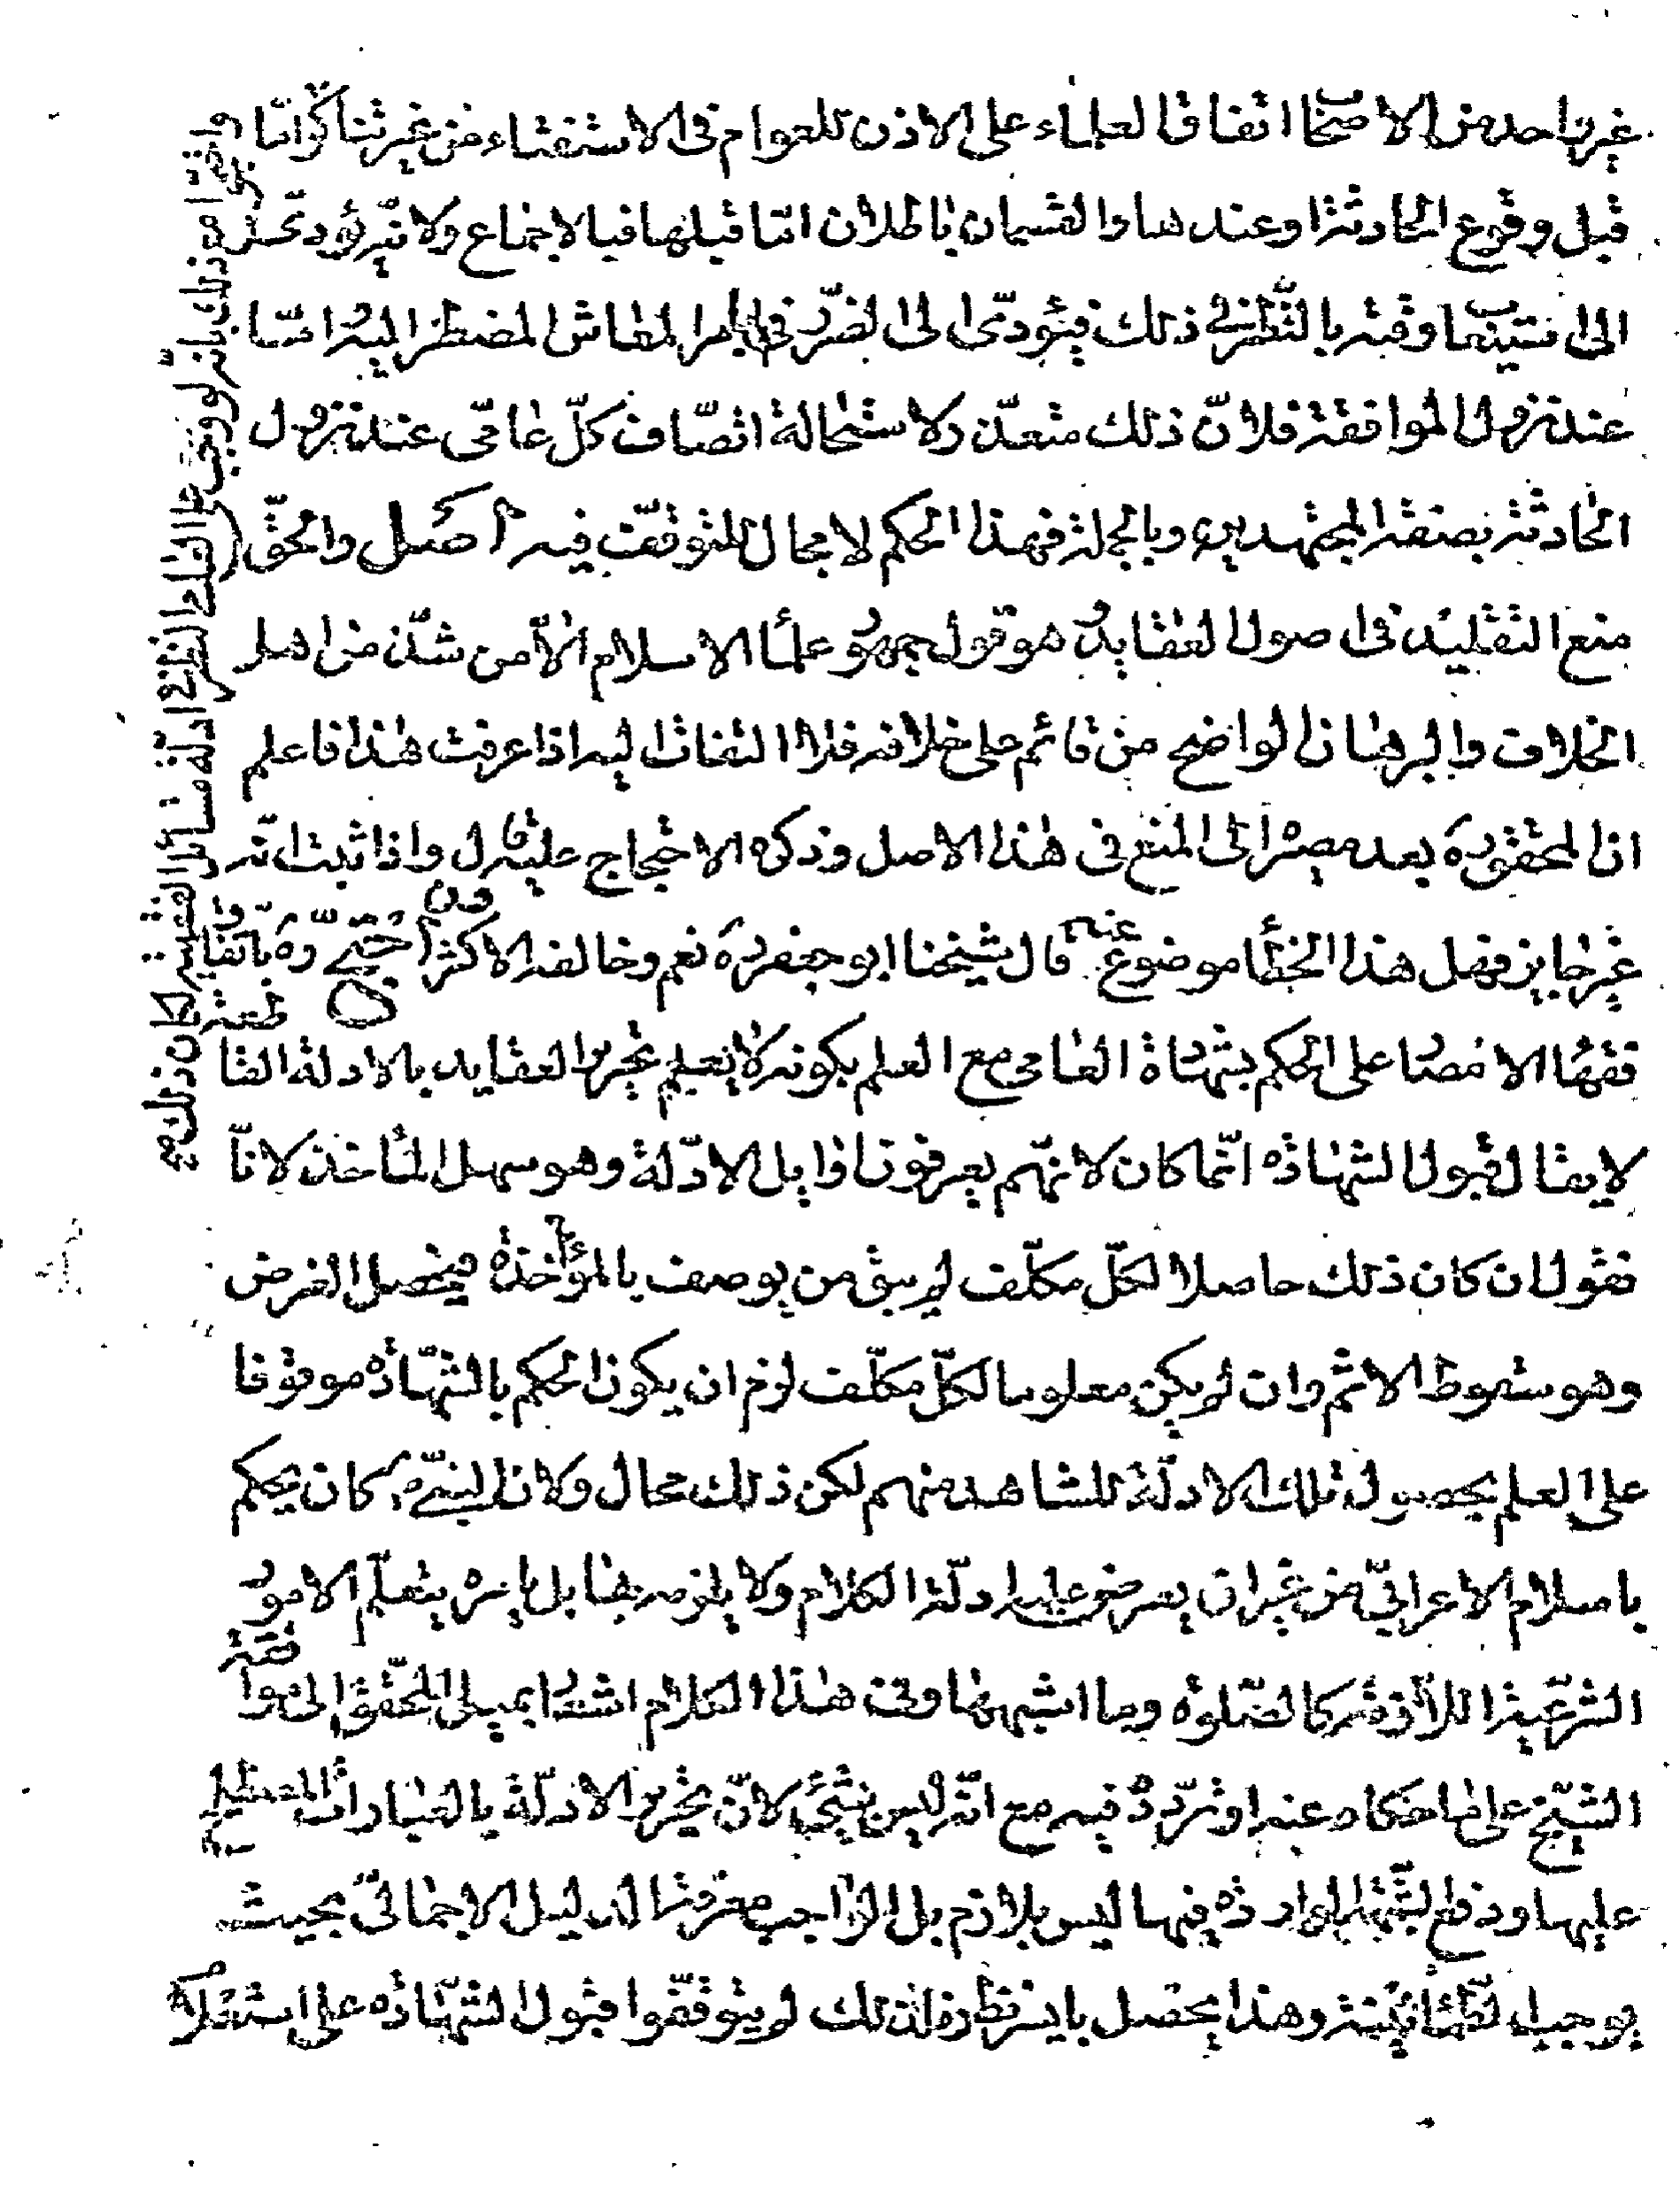 غير واحد من الاصحاب اتفاق العلماء على الاذن للعوام فى الاستفتاء من غير تناكر امّا
قبل وقوع الحادثة او عندها والقسمان باطلان امّا قبلها فبالاجماع ولانّه يؤدى
الى استيعاب وقته بالنّظر فى ذلك فيؤدّى الى الضّرر فى امر المعاش المضطر اليه امّا
عند نزول الواقعة فلانّ ذلك متعذّر لاستحالة اتّصاف كلّ عامّى عند نزول
الحادثة بصفة المجتهدين وبالجملة فهذا الحكم لا مجال للتوقّف فيه أصل والحقّ
منع التقليد فى اصول العقايد هو قول جمهور علماء الاسلام الّا من شذّ من اهل
الخلاف والبرهان الواضح من قائم على خلافه فلا التفات اليه اذا عرفت هذا فاعلم
ان المحقق ره بعد مصيره الى المنع فى هذا الاصل وذكره الاحتجاج عليه قال واذا ثبت انّه
غير جايز فهل هذا الخطأ موضوع عنه قال شيخنا ابو جعفر ره نعم وخالفه الاكثرون احتجّ ره باتّفاق
فقهاء الامصار على الحكم بشهادة العامى مع العلم بكونه لا يعلم تحرير العقايد بالادلة القاطعة
لا يقال قبول الشهادة انّما كان لانّهم يعرفون اوايل الادّلة وهو سهل المأخذ لانّا
نقول ان كان ذلك حاصلا لكلّ مكلّف لم يبق من يوصف بالمؤاخذة فيحصل الغرض
وهو سقوط الاثم وان لم يكن معلوما لكلّ مكلّف لزم ان يكون الحكم بالشهادة موقوفا
على العلم بحصول تلك الادلّة للشاهد منهم لكن ذلك محال ولان النبىّ ص كان يحكم
باسلام الاعرابىّ من غير ان يعرض عليه ادلّة الكلام ولا يلزمه بها بل يامره بتعلّم الامور
الشرعيّة اللازمة كالصّلوة وما اشبهها وفى هذا الكلام اشعار بميل المحقّق الى موافقة
الشيخ على ما حكاه عنه او تردّده فيه مع انّه ليس بشئ لانّ تحرير الادلّة بالعبارات المصطلح
عليها ودفع الشّبهة الواردة فيها ليس بلازم بل الواجب معرفة الدليل الاجمالىّ بحيث
يوجب الطّمأنينة وهذا يحصل بايسر نظر فلذلك لم يتوقّفوا قبول الشّهادة على استعلام
واعترض على ذلك بانّه لو وجب على العامى النظر فى ادلّة مسائل الفقهيّة لكان ذلك